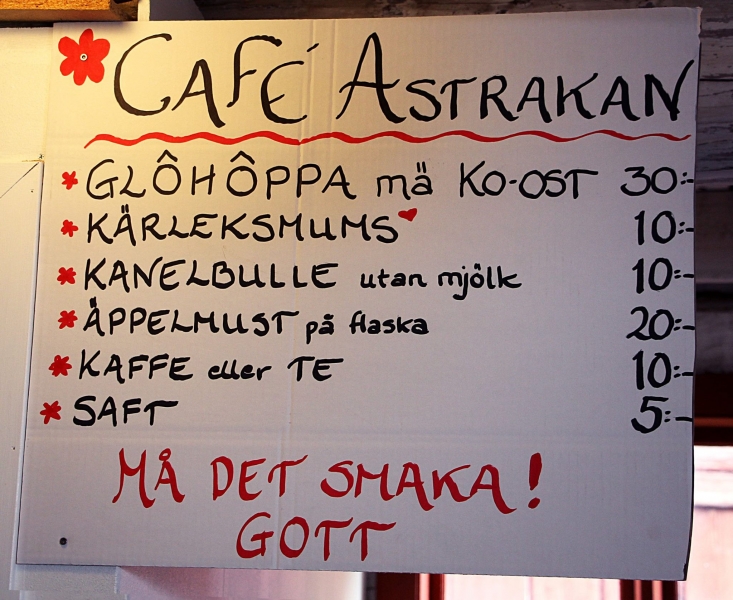 CAFÉ ASTRAKAN
GLÔHÔPPA mä KO-OST 30:-
KÄRLEKSMUMS 10:-
KANELBULLE utan mjölk 10:-
ÄPPELMUST på flaska 20:-
KAFFE eller TE 10:-
SAFT 5:-
MÅ DET SMAKA!
GOTT